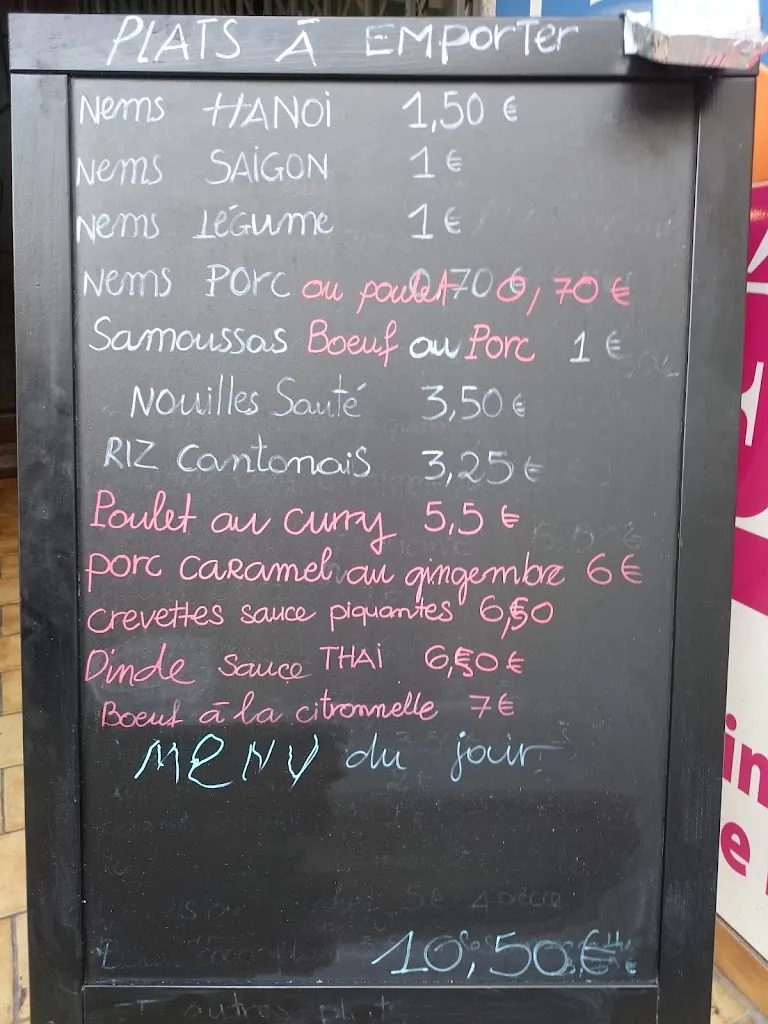 PLATS À EMPORTER
Nems HANOi 1,50 €
Nems SAiGON 1 €
Nems LéGUme 1 €
Nems PORC ou poulet 0,70 €
Samoussas Boeuf ou Porc 1 €
NOUilles Sauté 3,50 €
RIZ Cantonais 3,25 €
Poulet au curry 5,5 €
porc CARAMEL au gingembre 6 €
crevettes sauce piquantes 6,50
Dinde sauce THAi 6,50 €
Boeuf à la citronnelle 7 €
MENU du jour
10,50 €
autres plat